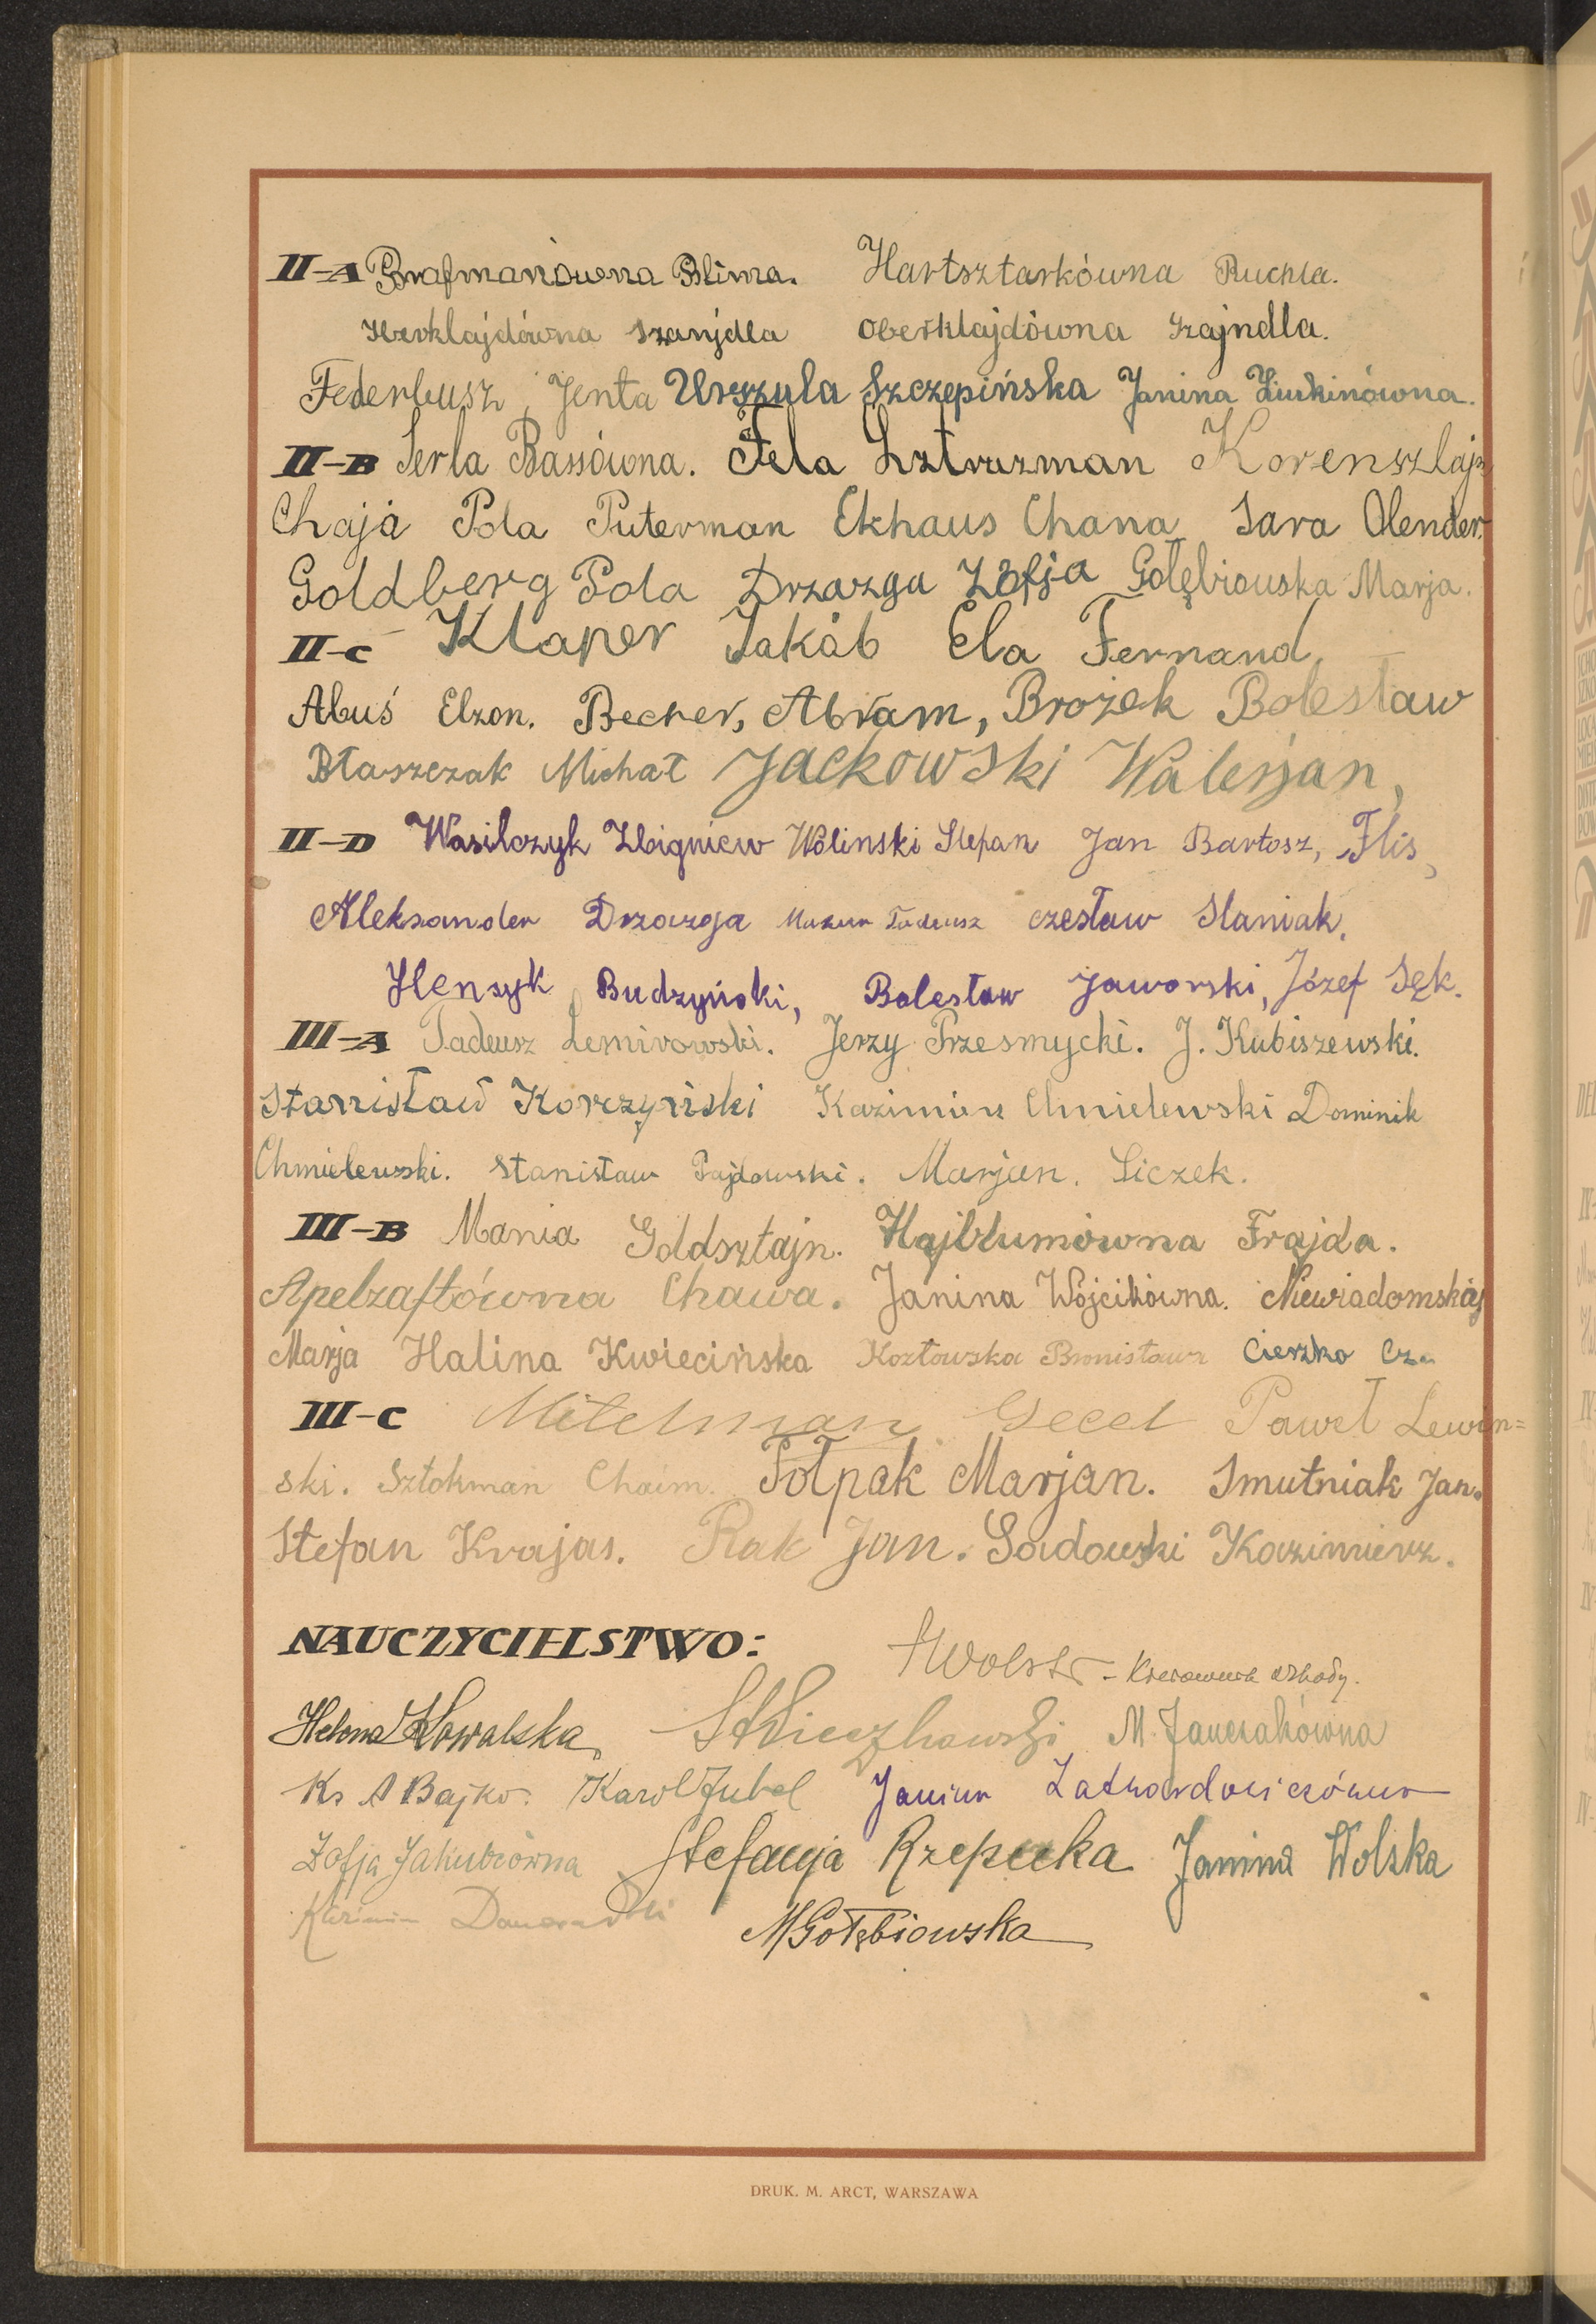 II-A Brafmanówna Blima. Hartsztarkówna Ruchla.
Herklajdówna Szanjdla Oberklajdówna Szajndla.
Federbusz, Jenta Urszula Szczepińska Janina Żiurkinówna.
II-B Serla Bassówna. Fela Lsztruzman Korenszlajn
Chaja Pola Puterman Ekhaus Chana Sara Olender.
Goldberg Pola Drzazga Zofja Gołębiowska Marja.
II-C Klaper Jakób Ela Fernand,
Abuś Elzon. Becher, Abram, Brożek Bolesław
Błaszczak Michał Jackowski Walerjan,
II-D Wasilczyk Zbigniew Woliński Stefan Jan Bartosz, Flis,
Aleksander Drzazga Mazur Tadeusz Czesław Staniak,
Henryk Budzyński, Bolesław Jaworski, Józef Sęk.
III-A Tadeusz Lemirowski. Jerzy Przesmycki. J. Kubiszewski.
Stanisław Korczyński Kazimierz Chmielewski Dominik
Chmielewski. Stanisław Pajdowski. Marjan. Siczek.
III-B Mania Goldsztajn. Hajblumówna Frajda.
Apelzaftówna Chawa. Janina Wójcikówna. Niewiadomska
Marja Halina Kwiecińska Kozłowska Bronisława Cieszko Cz.
III-C Mitelman Gecel Paweł Lewin=
ski. Sztokman Chaim. Połpak Marjan. Smutniak Jan.
Stefan Krajas. Rak Jan. Sadowski Kazimierz.
NAUCZYCIELSTWO:
- Kierownik szkoły.
Helena Kowalska, M. Janczakówna
Ks A Bajko. Karol Zubel Janina
Zofja Jakubcówna Stefanja Rzepecka Janina Wolska
M Gołębiowska
DRUK. M. ARCT, WARSZAWA